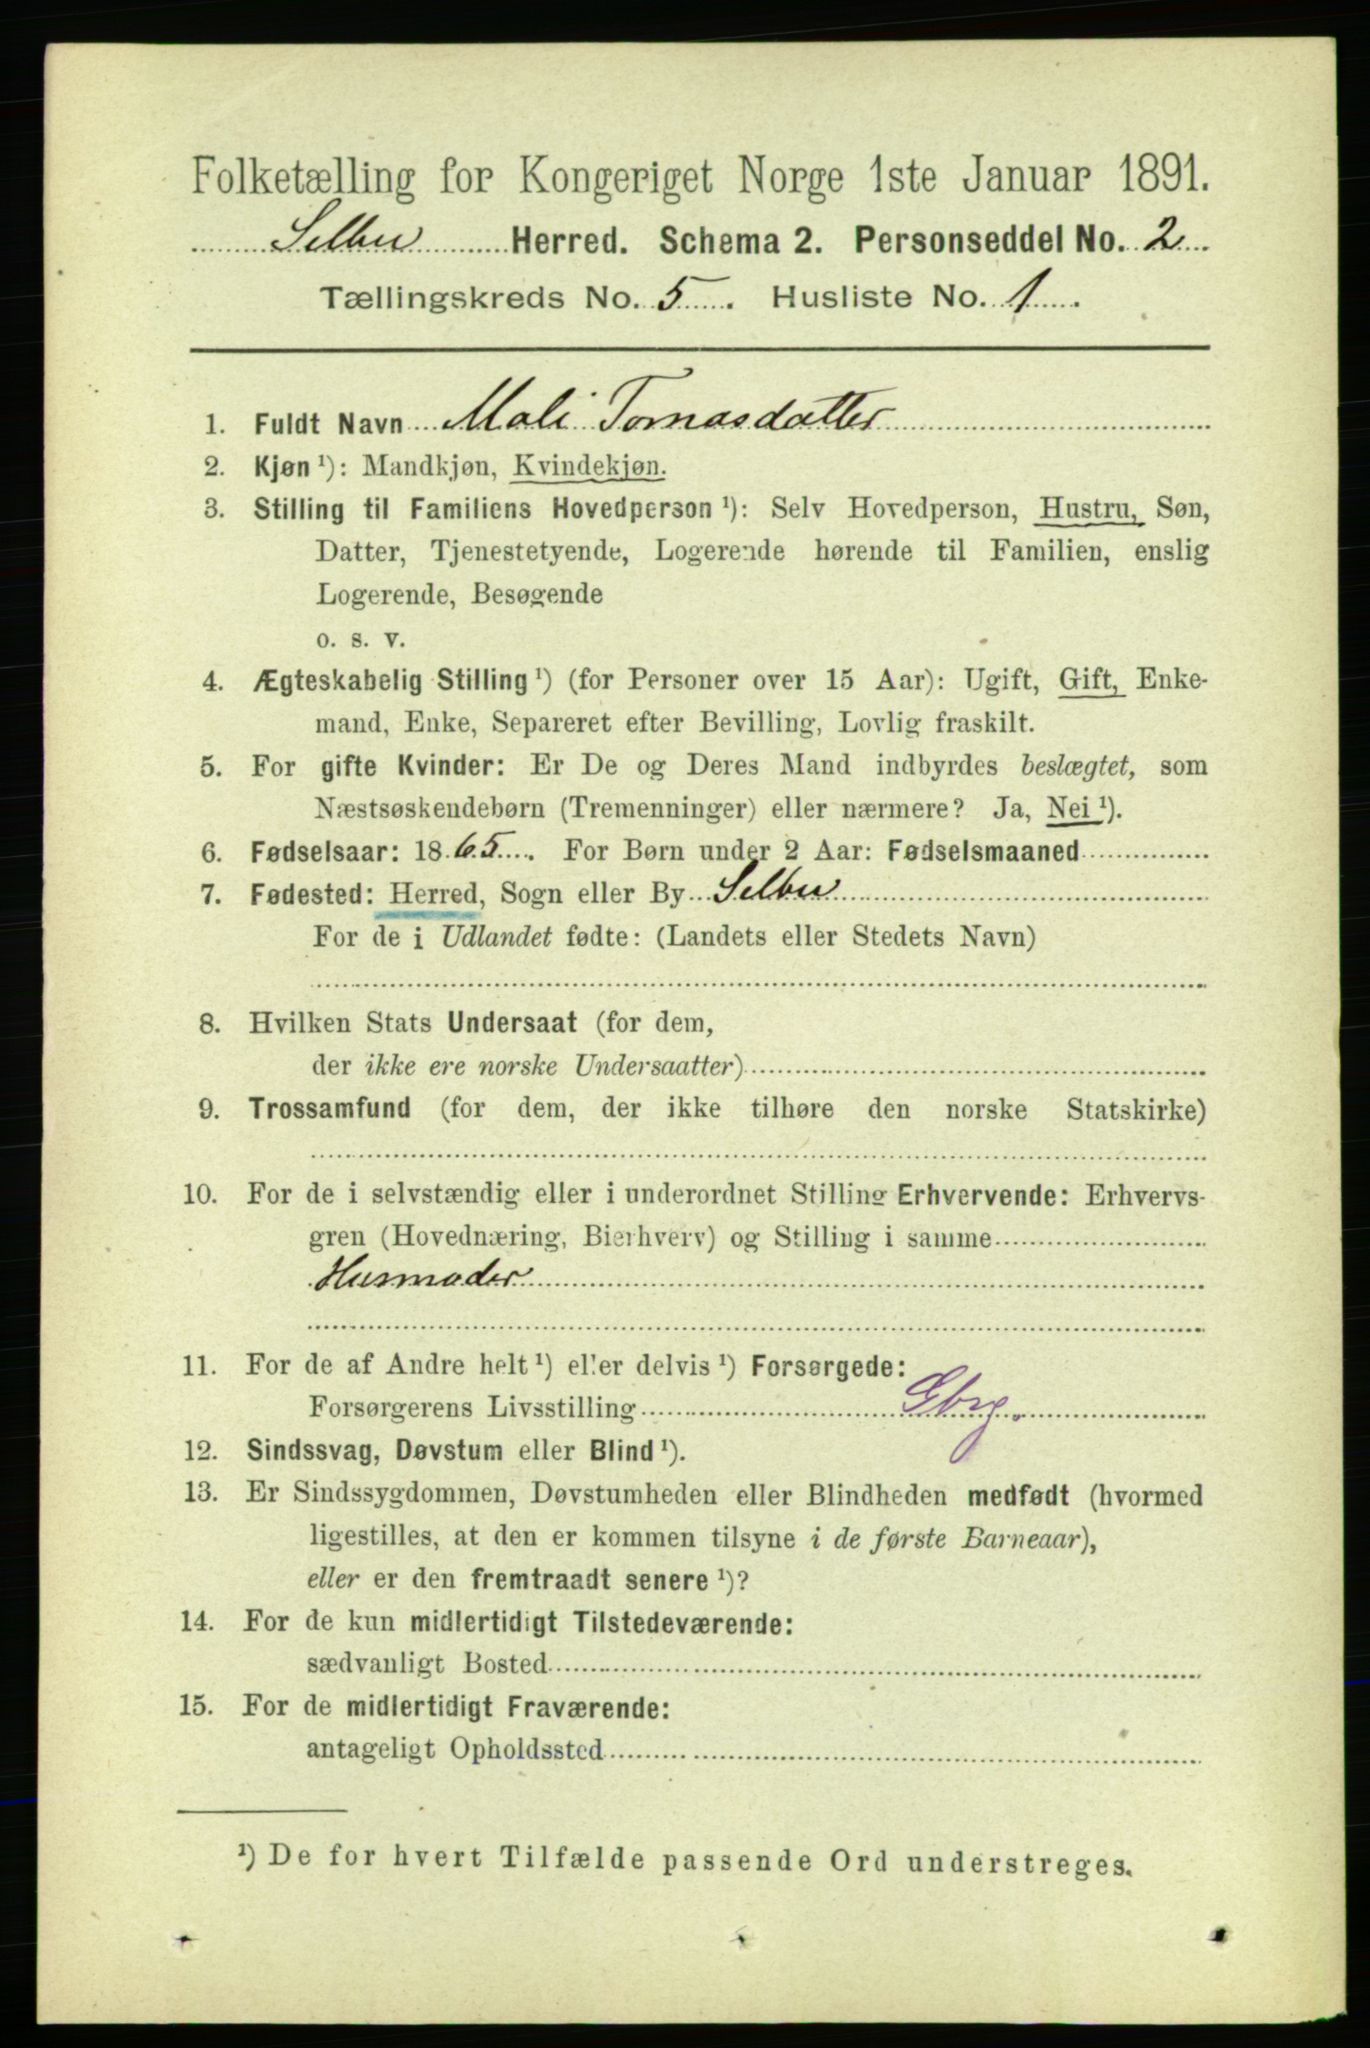 Folketælling for Kongeriget Norge 1ste Januar 1891.
Selbu Herred. Schema 2. Personseddel No. 2
Tællingskreds No. 5. Husliste No. 1.
1. Fuldt Navn Mali Tomasdatter
2. Kjøn ¹): Mandkjøn, Kvindekjøn.
3. Stilling til Familiens Hovedperson ¹): Selv Hovedperson, Hustru, Søn,
Datter, Tjenestetyende, Logerende hørende til Familien, enslig
Logerende, Besøgende
o. s. v.
4. Ægteskabelig Stilling ¹) (for Personer over 15 Aar): Ugift, Gift, Enke-
mand, Enke, Separeret efter Bevilling, Lovlig fraskilt.
5. For gifte Kvinder: Er De og Deres Mand indbyrdes beslægtet, som
Næstsøskendebørn (Tremenninger) eller nærmere? Ja, Nei ¹).
6. Fødselsaar: 1865. For Børn under 2 Aar: Fødselsmaaned
7. Fødested: Herred, Sogn eller By Selbu
For de i Udlandet fødte: (Landets eller Stedets Navn)
8. Hvilken Stats Undersaat (for dem,
der ikke ere norske Undersaatter)
9. Trossamfund (for dem, der ikke tilhøre den norske Statskirke)
10. For de i selvstændig eller i underordnet Stilling Erhvervende: Erhvervs-
gren (Hovednæring, Bierhverv) og Stilling i samme
Husmoder
11. For de af Andre helt ¹) eller delvis ¹) Forsørgede:
Forsørgerens Livsstilling Gbrg.
12. Sindssvag, Døvstum eller Blind ¹).
13. Er Sindssygdommen, Døvstumheden eller Blindheden medfødt (hvormed
ligestilles, at den er kommen tilsyne i de første Barneaar),
eller er den fremtraadt senere ¹)?
14. For de kun midlertidigt Tilstedeværende:
sædvanligt Bosted
15. For de midlertidigt Fraværende:
antageligt Opholdssted
¹) De for hvert Tilfælde passende Ord understreges.